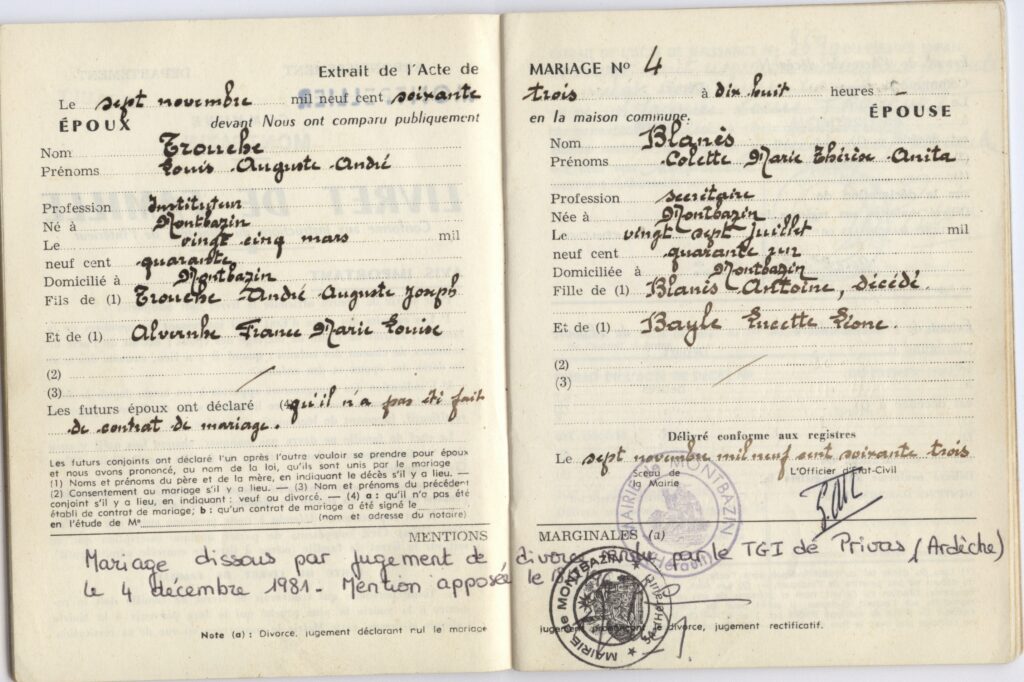 Extrait de l'Acte de
Le sept novembre mil neuf cent soixante
ÉPOUX devant Nous ont comparu publiquement
Nom Trouche
Prénoms Louis Auguste André
Profession Instituteur
Né à Montbazin
Le vingt cinq mars mil
neuf cent quarante
Domicilié à Montbazin
Fils de (1) Trouche André Auguste Joseph
Et de (1) Alvernhe France Marie Louise
(2)
(3)
Les futurs époux ont déclaré (4) qu'il n'a pas été fait
de contrat de mariage.
Les futurs conjoints ont déclaré l'un après l'autre vouloir se prendre pour époux
et nous avons prononcé, au nom de la loi, qu'ils sont unis par le mariage
(1) Noms et prénoms du père et de la mère, en indiquant le décès s'il y a lieu. —
(2) Consentement au mariage s'il y a lieu. — (3) Nom et prénoms du précédent
conjoint s'il y a lieu, en indiquant : veuf ou divorcé. — (4) a : qu'il n'a pas été
établi de contrat de mariage; b : qu'un contrat de mariage a été signé le
en l'étude de Me (nom et adresse du notaire)
MENTIONS
Mariage dissous par jugement de
le 4 décembre 1981. Mention apposée
Note (a) : Divorce, jugement déclarant nul le mariage
MARIAGE No 4
trois à dix huit heures
en la maison commune. ÉPOUSE
Nom Blanès
Prénoms Colette Marie Thérèse Anita
Profession secrétaire
Née à Montbazin
Le vingt sept Juillet mil
neuf cent quarante un
Domiciliée à Montbazin
Fille de (1) Blanès Antoine, décédé.
Et de (1) Bayle Lucette Léone.
(2)
(3)
Délivré conforme aux registres
Le sept novembre mil neuf cent soixante trois
Sceau de la Mairie
L'Officier d'État-Civil
MAIRIE de MONTBAZIN (Hérault)
MARGINALES (a)
divorce par le TGI de Privas (Ardèche)
le
MAIRIE de MONTBAZIN
jugement le divorce, jugement rectificatif.